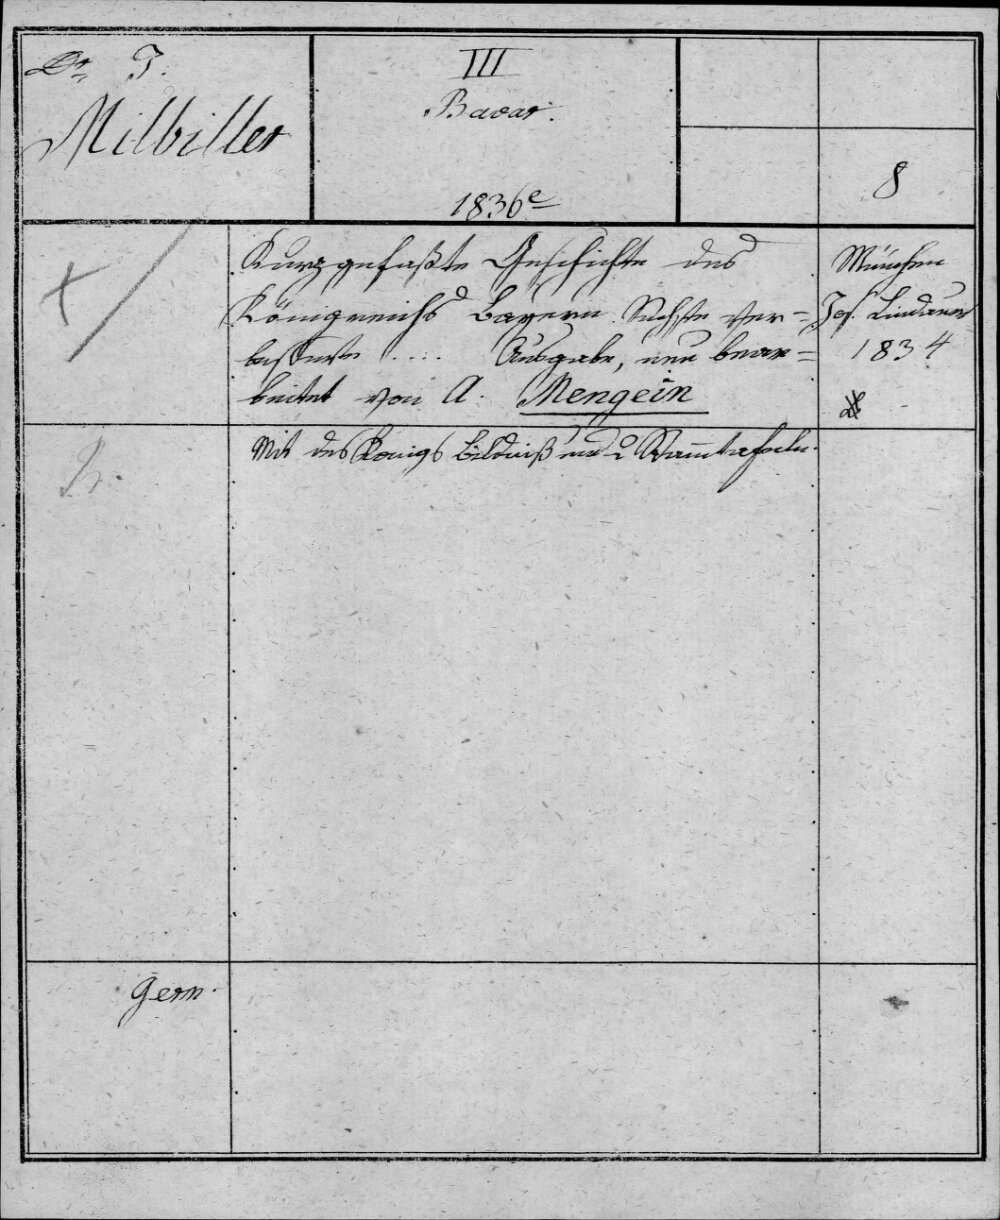 Dr J.
Milbiller
III
Bavar.
1836e
8
Kurzgefaßte Geschichte des
Königreichs Bayern. Sechste ver=
besserte .... Ausgabe, neu bear=
beitet von A. Mengein
München
Jos. Lindauer
1834
Mit des Königs Bildniß und 2 Stammtafeln.
Germ.